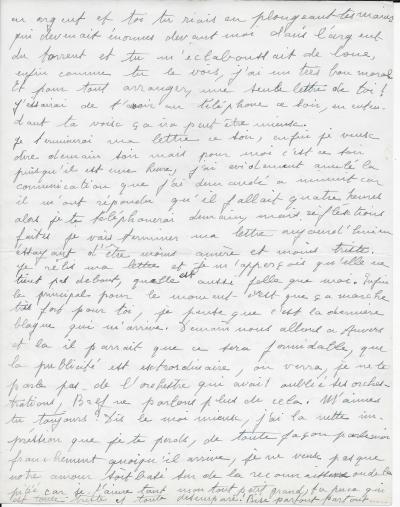 en argent et toi tu riais en plongeant tes mains
qui devenait énormes devant moi dans l'argent
du torrent et tu m'éclaboussait de boue,
enfin comme tu le vois, j'ai un très bon moral
Et pour tout arranger, une seule lettre de toi!
J'essairai de t'avoir au téléphone ce soir, en enten-
dant ta voix ça ira peut être mieux.
Je terminerai ma lettre ce soir, enfin je veux
dire demain soir mais pour moi c'est ce soir
puisqu'il est une heure, j'ai évidement annulé la
communication que j'ai demandé a minuit car
il m'ont répondu qu'il fallait quatre heures
alors je te téléphonerai demain, mais réflextions
faites je vais terminer ma lettre aujourd'hui en
éssayant d'être moins amère et moins triste.
Je relis ma lettre et je m'apperçois qu'elle ne
tient pas debout, qu'elle est aussi folle que moi. Enfin
le principal pour le moment c'est que ça marche
très fort pour toi, je pense que c'est la dernière
blague qui m'arrive. Demain nous allons a Anvers
et la il parrait que ce sera formidable, que
la publicité est extraordinaire, on verra, je ne te
parle pas de l'orchestre qui avait oublié ses orches-
trations, Bref ne parlons plus de cela. M'aimes
tu toujours? Dis le moi mieux, j'ai la nette im-
pression que je te perds, de toute façon parle moi
franchement quoiqu'il arrive, je ne veux pas que
notre amour soit basé sur de la reconnaissance ou de la
pitié car je t'aime tant mon tout petit grand, ta puce qui
est toute triste et toute désemparée. Bise partout partout.....